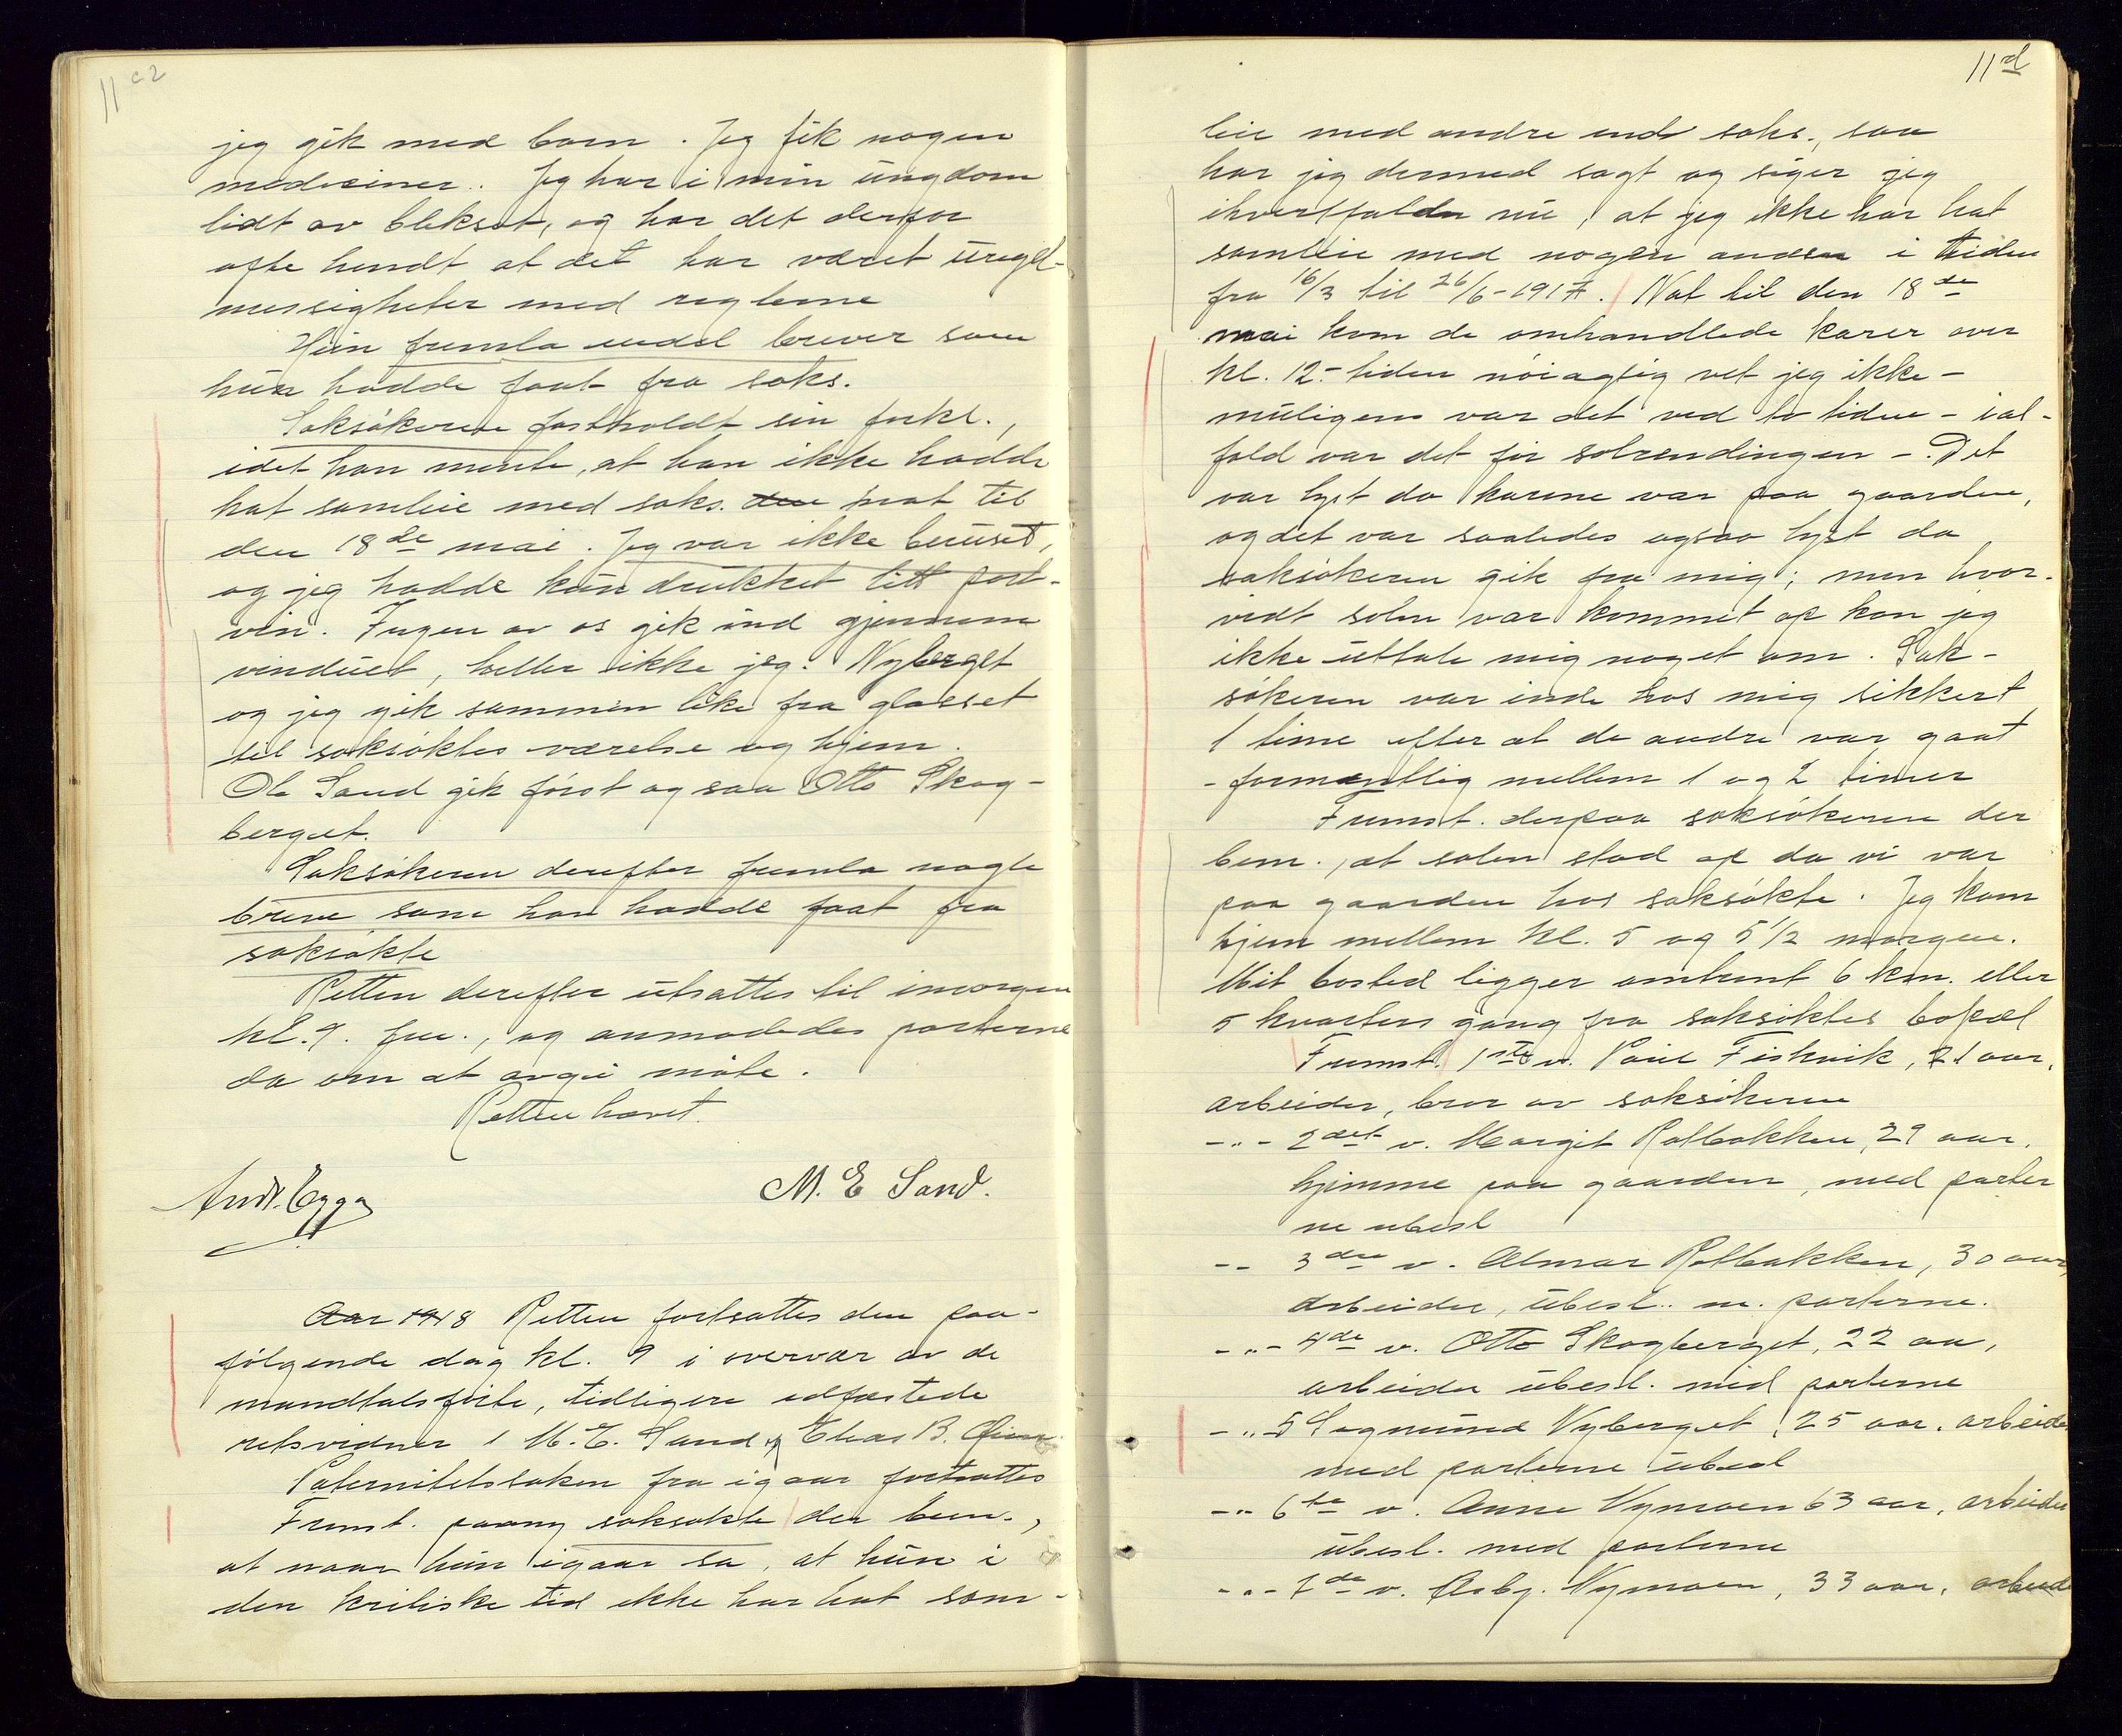 11 c2
jeg gik med barn. Jeg fik nogen
mediciner. Jeg har i min ungdom
lidt av bleksot, og har det derfor
ofte hendt at det har været uregel-
messigheter med reglerne
Hun fremla endel brever som
hun hadde faat fra saks.
Saksøkeren fastholdt sin forkl.,
idet han mente, at han ikke hadde
hat samleie med saks. den nat til
den 18de mai. Jeg var ikke beruset,
og jeg hadde kun drukket litt port-
vin. Ingen av os gik ind gjennem
vinduet, heller ikke jeg. Nyberget
og jeg gik sammen like fra
til saksøktes værelse og hjem.
Ole Sand gik først og saa Otto Skog-
berget.
Saksøkeren derefter fremla nogle
breve som han hadde faat fra
saksøkte
Retten derefter utsattes til imorgen
kl. 9. fm., og anmodedes parterne
da om at avgi møte.
Retten hævet.
M. E Sand.
Aar 1918 Retten fortsattes den paa-
følgende dag kl. 9 i overvær av de
mandtalsførte, tidligere edfæstede
retsvidner 1 M. E. Sand og Elias B.
Paternitetssaken fra igaar fortsattes
Fremst. paany saksøkte der bem.,
at naar hun igaar sa, at hun i
den kritiske tid ikke har hat sam-
11d
leie med andre end saks., saa
har jeg dermed sagt og siger jeg
ihvertfald nu, at jeg ikke har hat
samleie med nogen anden i tiden
fra 16/3 til 26/6-1917. Nat til den 18de
mai kom de omhandlede karer over
kl. 12.- tiden nøiagtig vet jeg ikke -
muligens var det ved to tiden - ial-
fald var det før solrendingen -. Det
var lyst da karene var paa gaarden,
og det var saaledes ogsaa lyst da
saksøkeren gik fra mig; men hvor-
vidt solen var kommet op kan jeg
ikke uttale mig noget om. Sak-
søkeren var inde hos mig sikkert
1 time efter at de andre var gaat
- formentlig mellem 1 og 2 timer
Fremst. derpaa saksøkeren der
bem., at solen stod op da vi var
paa gaarden hos saksøkte. Jeg kom
hjem mellem kl. 5 og 5 1/2 morgen.
Mit bosted ligger omtrent 6 km. eller
5 kvarters gang fra saksøktes bopæl
Fremst. 1ste v. Paul Fiskvik, 21 aar,
arbeider, bror av saksøkeren
-"- 2det v. Margit Rotbakken, 29 aar,
hjemme paa gaarden, med parter
ne ubesl
-- 3die v. Almar Rotbakken, 30 aar,
arbeider, ubesl. m. parterne.
-"- 4de v. Otto Skogberget, 22 aa,
arbeider ubesl. med parterne
-"- 5 Sogmund Nyberget, 25 aar, arbeide
med parterne ubesl
-"- 6te v. Anne Nymoen 63 aar, arbeider
ubesl. med parterne
-"- 7de v. Asbj. Nymoen, 33 aar, arbeid